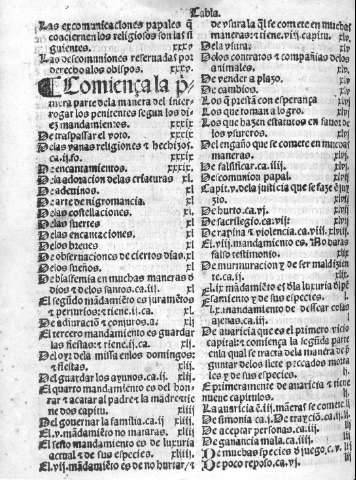 Tabla.
Las excomunicaciones papales q̃
conciernen los religiosos son las si
guientes. xxxv
Las descomuniones reseruadas por
derecho alos obispos. xxxv
Comiença la p̃-
mera parte dela manera del inter
rogar los penitentes segun los di
ez mandamientos. xxxix
De traspassar el voto. xxxix
Delas vanas religiones ⁊ hechizos.
ca.ij.fo. xxxix
De encantamientos. xxxix
Dela adoracion delas criaturas xl
De adeuinos. xl
De arte de nigromancia. xl
Delas costellaciones. xl
Delas suertes xl
Delas encantaciones. xl
Delos breues xl
De obseruaciones de ciertos dias. xl
Delos sueños. xl
De blasfemia en muchas maneras d̃
dios ⁊ delos santos. ca.iij. xl
El segũdo mãdamiẽto es juramẽtos
⁊ perjurios: ⁊ tiene.ij.ca.
De adiuraciõ ⁊ conjuros.
El tercero mandamiento es guardar
las fiestas: ⁊ tiene.ij.ca.
Del oyr dela missa enlos domingos:
⁊ fiestas. xlij
Del guardar los ayunos. ca.ij
El quarto mandamiento es de hon-
rar ⁊ acatar al padre ⁊ la madre: tie
ne dos capitu. xliij
Del gouernar la familia. ca.ij
El.v. mãdamiẽto no mataras.
El sesto mandamiento es de luxuria
actual ⁊ de sus especies. xliij
El.vij. mãdamiẽto es de no hurtar/ ⁊
de vsura la q̃l se comete en muchas
maneras: ⁊ tiene.viij. capitu.
Dela vsura.
Delos contratos ⁊ compañias delos
animales.
De vender a plazo.
De cambios.
Los q̃ prestã con esperança
Los que toman a logro.
Los que hazen estatutos en fauor de
los vsureros.
Del engaño que se comete en muchas
maneras.
De falsificar.
De comunion papal.
Capit.v. dela justicia que se faze
De hurto. ca.vj.
De sacrilegio. ca.vij
De rapina ⁊ violencia. ca.viij.
El.viij. mandamiento es. No haras
falso testimonio.
De murmuracion y de ser maldizien
te. ca.ij
El.ix mãdamiẽto es dela luxuria del pẽ
samiento y de sus especies.
El.x. mandamiento de dessear cosas
ajenas. ca.iij
De auaricia que es el primer vicio
capital: ⁊ comiença la segũda parte
enla qual se trata dela manera de p̃
guntar delos siete peccados morta
les y de sus especies.
E primeramente de auaricia ⁊ tiene
nueue capitulos.
La auaricia
De simonia
De aceptar personas. ca.iij.
De ganancia mala. ca.iiij.
De muchas especies d̃ juego.
De poco reposo. ca.vj